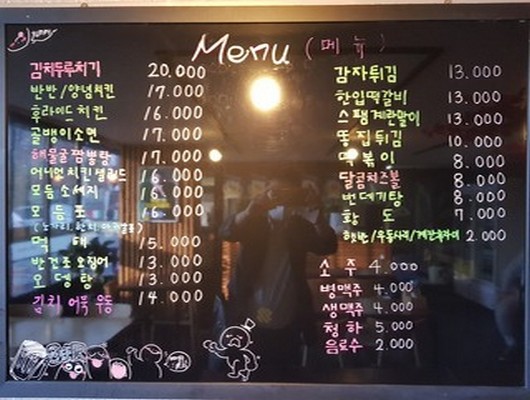 Menu (메뉴)
김치두루치기 20.000
반반/양념치킨 17.000
후라이드치킨 16.000
골뱅이소면 17.000
해물굴짬뽕탕 17.000
어니언치킨샐러드 16.000
모듬소세지 16.000
모듬포 16.000
먹태 15.000
반건조오징어 13.000
오뎅탕 13.000
김치어묵우동 14.000
감자튀김 13.000
한입떡갈비 13.000
스팸계란말이 13.000
똥집튀김 10.000
떡볶이 8.000
달콤치즈볼 8.000
번데기탕 8.000
황도 7.000
햇반/우동사리/계란후라이 2.000
소주 4.000
병맥주 4.000
생맥주 4.000
청하 5.000
음료수 2.000